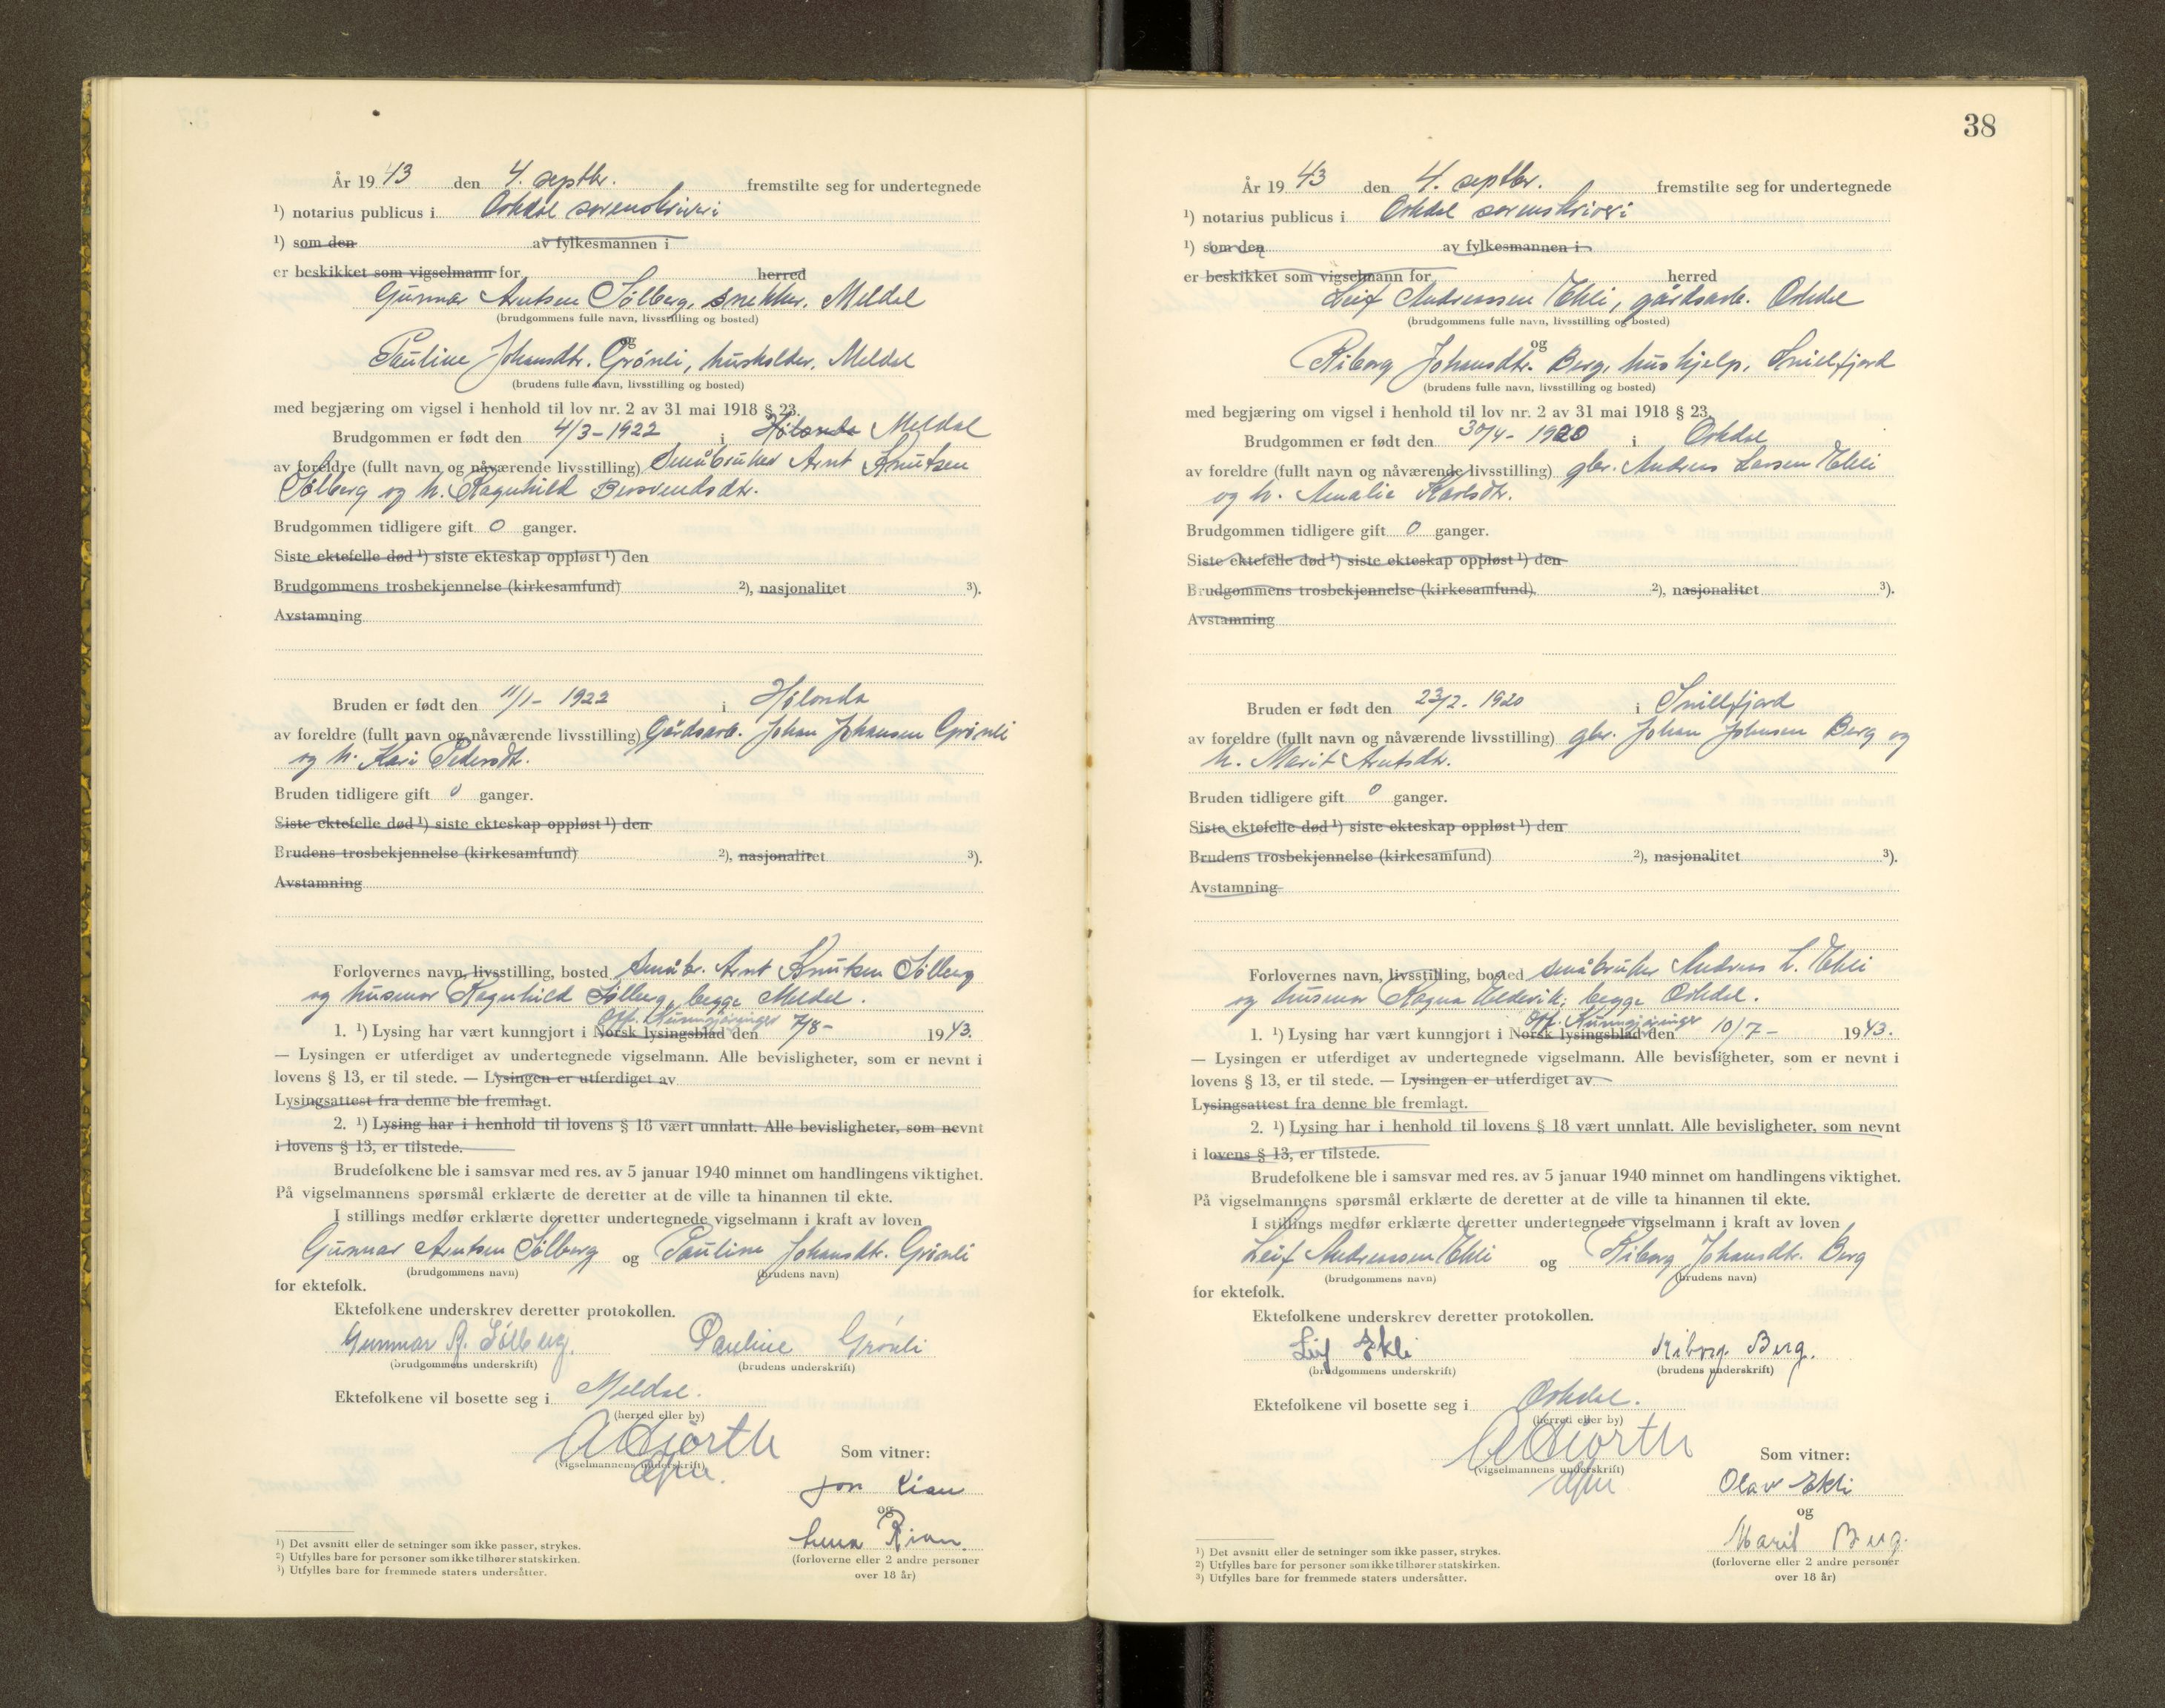 År 1943 den 4. septbr. fremstilte seg for undertegnede
¹) notarius publicus i Orkdal sorenskriveri
¹) som den av fylkesmannen i
er beskikket som vigselmann for herred
Gunnar Arntsen Sølberg, snekker, Meldal
(brudgommens fulle navn, livsstilling og bosted)
og
Pauline Johansdtr. Grönli, husholder, Meldal
(brudens fulle navn, livsstilling og bosted)
med begjæring om vigsel i henhold til lov nr. 2 av 31 mai 1918 § 23.
Brudgommen er født den 4/3-1922 i Hølonda Meldal
av foreldre (fullt navn og nåværende livsstilling) Småbruker Arnt Knutsen
Sølberg og h. Ragnhild Bersvendsdtr.
Brudgommen tidligere gift 0 ganger.
Siste ektefelle død ¹) siste ekteskap oppløst ¹) den
Brudgommens trosbekjennelse (kirkesamfund) ²), nasjonalitet ³).
Avstamning
Bruden er født den 11/1- 1922 i Hølonda
av foreldre (fullt navn og nåværende livsstilling) Gårdsarb. Johan Johansen Grönli
og h. Kari Pedersdtr.
Bruden tidligere gift 0 ganger.
Siste ektefelle død ¹) siste ekteskap oppløst ¹) den
Brudens trosbekjennelse (kirkesamfund) ²), nasjonalitet ³).
Avstamning
Forlovernes navn, livsstilling, bosted Småbr. Arnt Knutsen Sølberg
og husmor Ragnhild Sølberg, begge Meldal.
Off. Kunngjøringer
1. ¹) Lysing har vært kunngjort i Norsk lysingsblad den 7/8- 1943.
— Lysingen er utferdiget av undertegnede vigselmann. Alle bevisligheter, som er nevnt i
lovens § 13, er til stede. — Lysingen er utferdiget av
Lysingsattest fra denne ble fremlagt.
2. ¹) Lysing har i henhold til lovens § 18 vært unnlatt. Alle bevisligheter, som nevnt
i lovens § 13, er tilstede.
Brudefolkene ble i samsvar med res. av 5 januar 1940 minnet om handlingens viktighet.
På vigselmannens spørsmål erklærte de deretter at de ville ta hinannen til ekte.
I stillings medfør erklærte deretter undertegnede vigselmann i kraft av loven
Gunnar Arntsen Sølberg og Pauline Johansdtr. Grönli
(brudgommens navn) (brudens navn)
for ektefolk.
Ektefolkene underskrev deretter protokollen.
Gunnar A. Sølberg. Pauline Grönli
(brudgommens underskrift) (brudens underskrift)
Ektefolkene vil bosette seg i Meldal.
(herred eller by)
Som vitner:
(vigselmannens underskrift)
Jon Rian
og
Rian.
(forloverne eller 2 andre personer
over 18 år)
¹) Det avsnitt eller de setninger som ikke passer, strykes.
²) Utfylles bare for personer som ikke tilhører statskirken.
³) Utfylles bare for fremmede staters undersåtter.
38
År 1943 den 4. septbr. fremstilte seg for undertegnede
¹) notarius publicus i Orkdal sorenskriveri
¹) som den av fylkesmannen i
er beskikket som vigselmann for herred
Leif Andreassen Ekli, gårdsarb. Orkdal
(brudgommens fulle navn, livsstilling og bosted)
og
Kiborg Johansdtr. Berg, hushjelp, Snillfjord
(brudens fulle navn, livsstilling og bosted)
med begjæring om vigsel i henhold til lov nr. 2 av 31 mai 1918 § 23.
Brudgommen er født den 30/4- 1920 i Orkdal
av foreldre (fullt navn og nåværende livsstilling) gbr. Andreas Larsen Ekli
og h. Amalie Karlsdtr.
Brudgommen tidligere gift 0 ganger.
Siste ektefelle død ¹) siste ekteskap oppløst ¹) den
Brudgommens trosbekjennelse (kirkesamfund) ²), nasjonalitet ³).
Avstamning
Bruden er født den 23/2. 1920 i Snillfjord
av foreldre (fullt navn og nåværende livsstilling) gbr. Johan Johnsen Berg og
h. Marit Arntsdtr.
Bruden tidligere gift 0 ganger.
Siste ektefelle død ¹) siste ekteskap oppløst ¹) den
Brudens trosbekjennelse (kirkesamfund) ²), nasjonalitet ³).
Avstamning
Forlovernes navn, livsstilling, bosted småbruker Andreas L. Ekli
og husmor Ragna Eldevik, begge Orkdal.
Off. Kunngjøringer
1. ¹) Lysing har vært kunngjort i Norsk lysingsblad den 10/7- 1943.
— Lysingen er utferdiget av undertegnede vigselmann. Alle bevisligheter, som er nevnt i
lovens § 13, er til stede. — Lysingen er utferdiget av
Lysingsattest fra denne ble fremlagt.
2. ¹) Lysing har i henhold til lovens § 18 vært unnlatt. Alle bevisligheter, som nevnt
i lovens § 13, er tilstede.
Brudefolkene ble i samsvar med res. av 5 januar 1940 minnet om handlingens viktighet.
På vigselmannens spørsmål erklærte de deretter at de ville ta hinannen til ekte.
I stillings medfør erklærte deretter undertegnede vigselmann i kraft av loven
Leif Andreassen Ekli og Kiborg Johansdtr. Berg
(brudgommens navn) (brudens navn)
for ektefolk.
Ektefolkene underskrev deretter protokollen.
Leif Ekli Kiborg Berg.
(brudgommens underskrift) (brudens underskrift)
Ektefolkene vil bosette seg i Orkdal.
(herred eller by)
Som vitner:
(vigselmannens underskrift)
Olav Ekli
og
Marit Berg.
(forloverne eller 2 andre personer
over 18 år)
¹) Det avsnitt eller de setninger som ikke passer, strykes.
²) Utfylles bare for personer som ikke tilhører statskirken.
³) Utfylles bare for fremmede staters undersåtter.